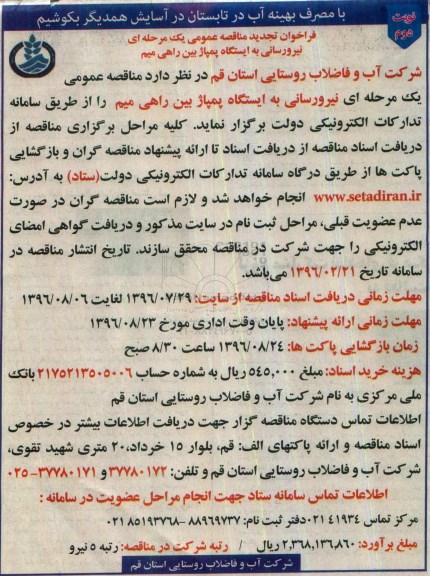 با مصرف بهینه آب در تابستان در آسایش همدیگر بکوشیم
نوبت دوم
فراخوان تجدید مناقصه عمومی یک مرحله ای
نیرورسانی به ایستگاه پمپاژ بین راهی میم
شرکت آب و فاضلاب روستایی استان قم در نظر دارد مناقصه عمومی
یک مرحله ای نیرورسانی به ایستگاه پمپاژ بین راهی میم را از طریق سامانه
تدارکات الکترونیکی دولت برگزار نماید. کلیه مراحل برگزاری مناقصه از
دریافت اسناد مناقصه از دریافت اسناد تا ارائه پیشنهاد مناقصه گران و بازگشایی
پاکت ها از طریق درگاه سامانه تدارکات الکترونیکی دولت(ستاد) به آدرس:
www.setadiran.ir انجام خواهد شد و لازم است مناقصه گران در صورت
عدم عضویت قبلی، مراحل ثبت نام در سایت مذکور و دریافت گواهی امضای
الکترونیکی را جهت شرکت در مناقصه محقق سازند. تاریخ انتشار مناقصه در
سامانه تاریخ ۱۳۹۶/۰۲/۲۱ می‌باشد.
مهلت زمانی دریافت اسناد مناقصه از سایت: ۱۳۹۶/۰۷/۲۹ لغایت ۱۳۹۶/۰۸/۰۶
مهلت زمانی ارائه پیشنهاد: پایان وقت اداری مورخ ۱۳۹۶/۰۸/۲۳
زمان بازگشایی پاکت ها: ۱۳۹۶/۰۸/۲۴ ساعت ۸/۳۰ صبح
هزینه خرید اسناد: مبلغ ۵۴۵,۰۰۰ ریال به شماره حساب ۲۱۷۵۲۱۳۵۰۵۰۰۶ بانک
ملی مرکزی به نام شرکت آب و فاضلاب روستایی استان قم
اطلاعات تماس دستگاه مناقصه گزار جهت دریافت اطلاعات بیشتر در خصوص
اسناد مناقصه و ارائه پاکتهای الف: قم، بلوار ۱۵ خرداد،۲۰ متری شهید تقوی،
شرکت آب و فاضلاب روستایی استان قم و تلفن: ۳۷۷۸۰۱۷۲ و ۳۷۷۸۰۱۷۱-۰۲۵
اطلاعات تماس سامانه ستاد جهت انجام مراحل عضویت در سامانه :
مرکز تماس ۴۱۹۳۴ ۰۲۱دفتر ثبت نام: ۸۸۹۶۹۷۳۷ – ۸۵۱۹۳۷۶۸ ۰۲۱
مبلغ برآورد: ۲,۳۶۸,۱۳۶,۸۶۰ ریال / رتبه شرکت در مناقصه: رتبه ۵ نیرو
شرکت آب و فاضلاب روستایی استان قم